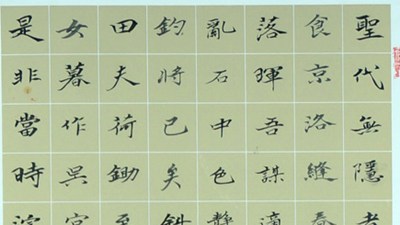 聖代無隱者
食京洛縫春
落暉吾謀適
亂石中色靜
釣將已矣斜
田夫荷鋤至
女暮作吳宮
是非當時浣